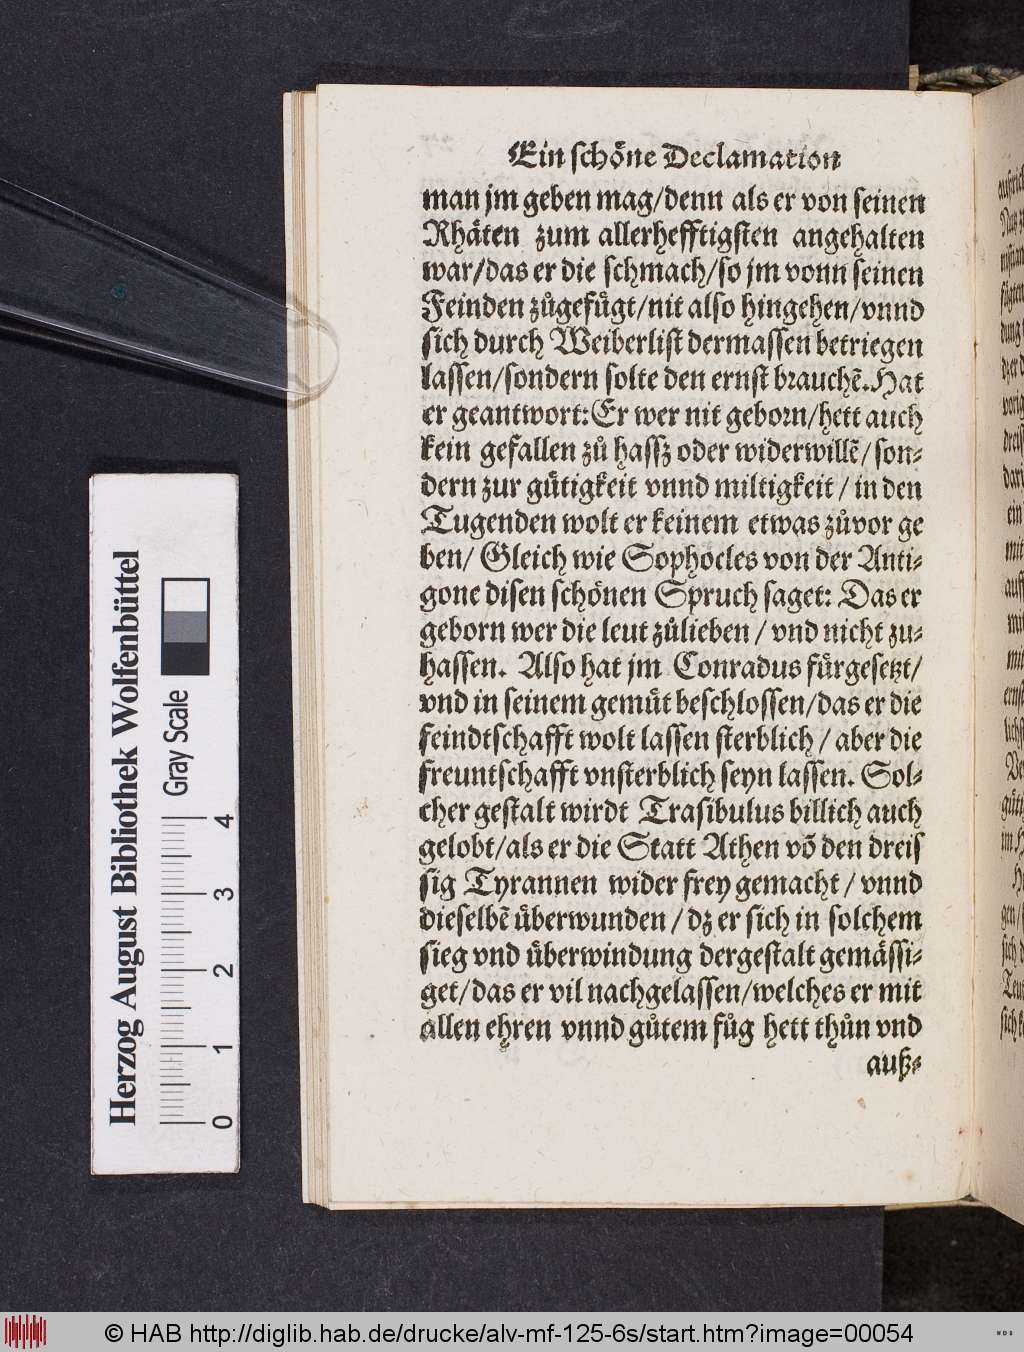 Ein schöne Declamation
man jm geben mag/denn als er von seinen
Rhäten zum allerhefftigsten angehalten
war/das er die schmach/so jm vonn seinen
Feinden zůgefügt/nit also hingehen/vnnd
sich durch Weiberlist dermassen betriegen
lassen/sondern solte den ernst brauchẽ.Hat
er geantwort:Er wer nit geborn/hett auch
kein gefallen zů hassz oder widerwillẽ/son-
dern zur gütigkeit vnnd miltigkeit / in den
Tugenden wolt er keinem etwas zůvor ge
ben/ Gleich wie Sophocles von der Anti-
gone disen schönen Spruch saget: Das er
geborn wer die leut zůlieben / vnd nicht zu-
hassen. Also hat jm Conradus fürgesetzt/
vnd in seinem gemüt beschlossen/das er die
feindtschafft wolt lassen sterblich / aber die
freuntschafft vnsterblich seyn lassen. Sol-
cher gestalt wirdt Trasibulus billich auch
gelobt/als er die Statt Athen võ den dreis
sig Tyrannen wider frey gemacht / vnnd
dieselbẽ überwunden / dz er sich in solchem
sieg vnd überwindung dergestalt gemässi-
get/das er vil nachgelassen/welches er mit
allen ehren vnnd gůtem fůg hett thůn vnd
auß-
Herzog August Bibliothek Wolfenbüttel
Gray Scale
0 1 2 3 4
© HAB http://diglib.hab.de/drucke/alv-mf-125-6s/start.htm?image=00054